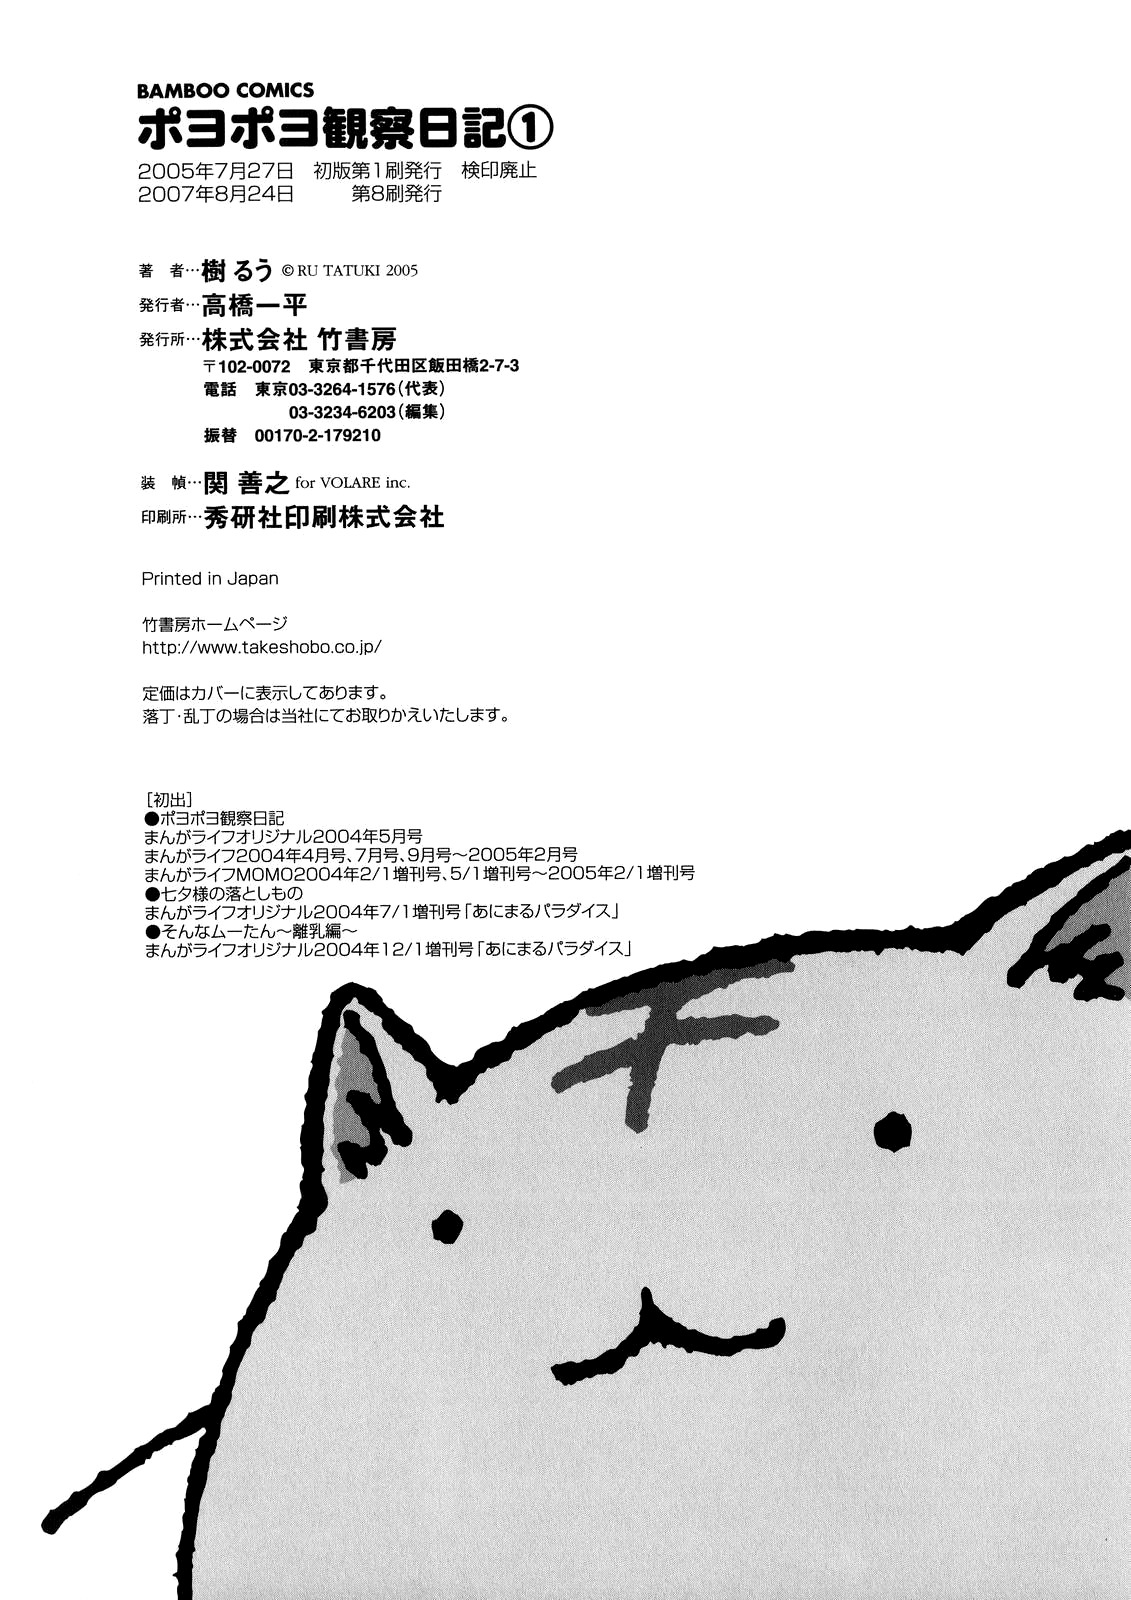 BAMBOO COMICS
ポヨポヨ観察日記①
2005年7月27日　初版第1刷発行　検印廃止
2007年8月24日　　　第8刷発行
著　者…樹 るう ©RU TATUKI 2005
発行者…高橋一平
発行所…株式会社 竹書房
〒102-0072　東京都千代田区飯田橋2-7-3
電話　東京03-3264-1576(代表)
03-3234-6203(編集)
振替　00170-2-179210
装　幀…関 善之 for VOLARE inc.
印刷所…秀研社印刷株式会社
Printed in Japan
竹書房ホームページ
http://www.takeshobo.co.jp/
定価はカバーに表示してあります。
落丁・乱丁の場合は当社にてお取りかえいたします。
[初出]
●ポヨポヨ観察日記
まんがライフオリジナル2004年5月号
まんがライフ2004年4月号、7月号、9月号～2005年2月号
まんがライフMOMO2004年2/1増刊号、5/1増刊号～2005年2/1増刊号
●七夕様の落としもの
まんがライフオリジナル2004年7/1増刊号「あにまるパラダイス」
●そんなムーたん～離乳編～
まんがライフオリジナル2004年12/1増刊号「あにまるパラダイス」